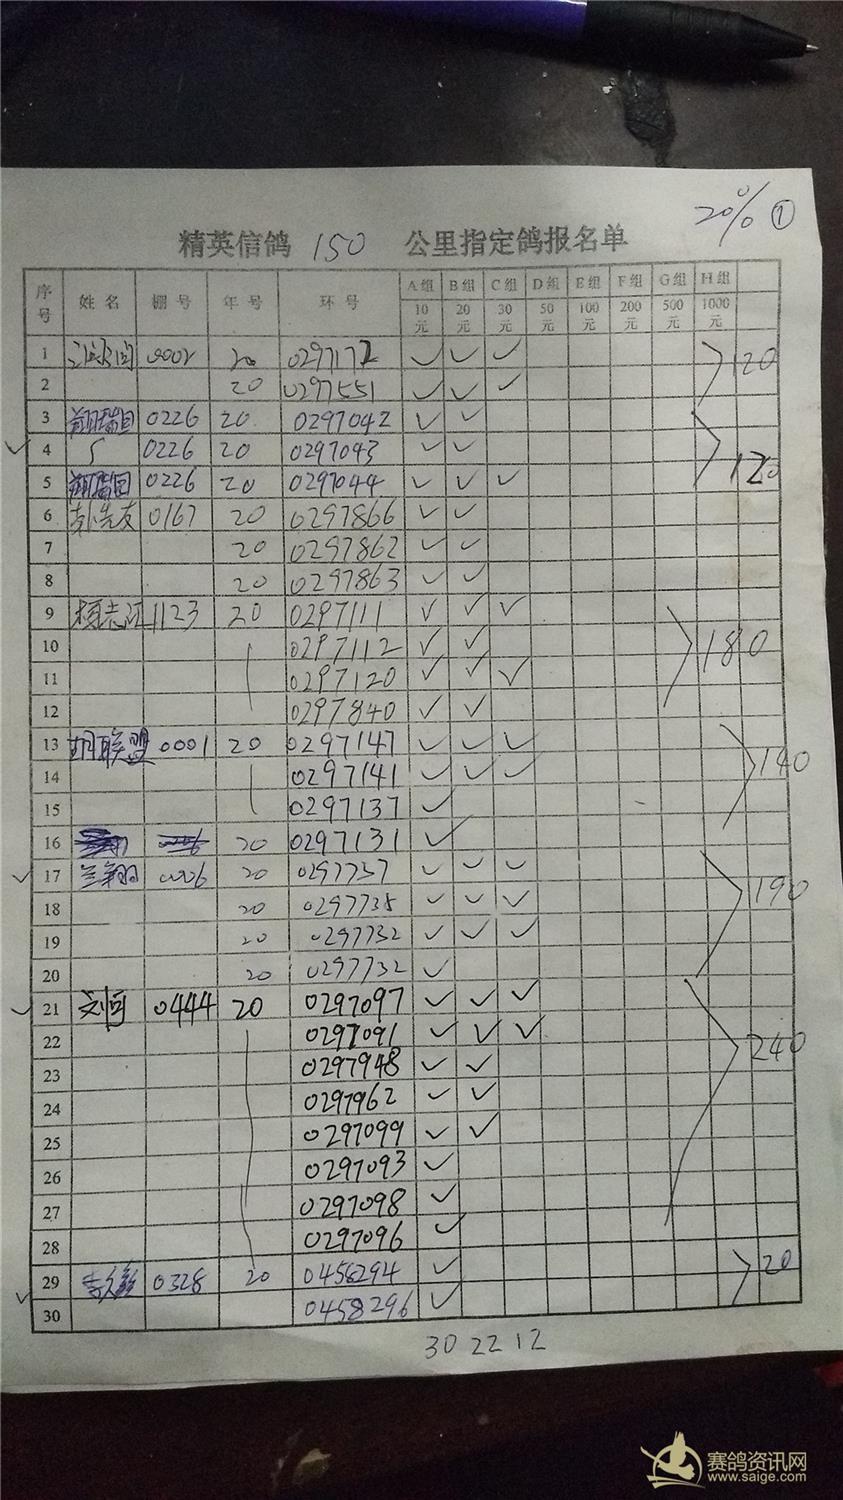 20% ①
精英信鸽 150 公里指定鸽报名单
序号 姓名 棚号 年号 环号 A组 B组 C组 D组 E组 F组 G组 H组
10元 20元 30元 50元 100元 200元 500元 1000元
1 0002 20 0297172 ✓ ✓ ✓ 120
2 20 0297551 ✓ ✓ ✓
3 翔瑞园 0226 20 0297042 ✓ ✓
✓ 4 0226 20 0297043 ✓ ✓ 120
5 翔瑞园 0226 20 0297044 ✓ ✓ ✓
6 0167 20 0297866 ✓ ✓
7 20 0297862 ✓ ✓
8 20 0297863 ✓ ✓
9 1123 20 0297111 ✓ ✓ ✓
10 0297112 ✓ ✓ 180
11 0297120 ✓ ✓ ✓
12 0297840 ✓ ✓
13 胡联盟 0001 20 0297147 ✓ ✓ ✓
14 0297141 ✓ ✓ ✓ 140
15 0297137 ✓
16 20 0297131 ✓
✓ 17 兰翔 0006 20 0297757 ✓ ✓ ✓
18 20 0297735 ✓ ✓ ✓ 190
19 20 0297732 ✓ ✓ ✓
20 20 0297732 ✓
✓ 21 刘恒 0444 20 0297097 ✓ ✓ ✓
22 0297091 ✓ ✓ ✓ 240
23 0297948 ✓ ✓
24 0297962 ✓ ✓
25 0297099 ✓ ✓
26 0297093 ✓
27 0297098 ✓
28 0297096 ✓
29 0328 20 0458294 ✓ 20
✓ 30 0458296 ✓
30 22 12
赛鸽资讯网
www.saige.com